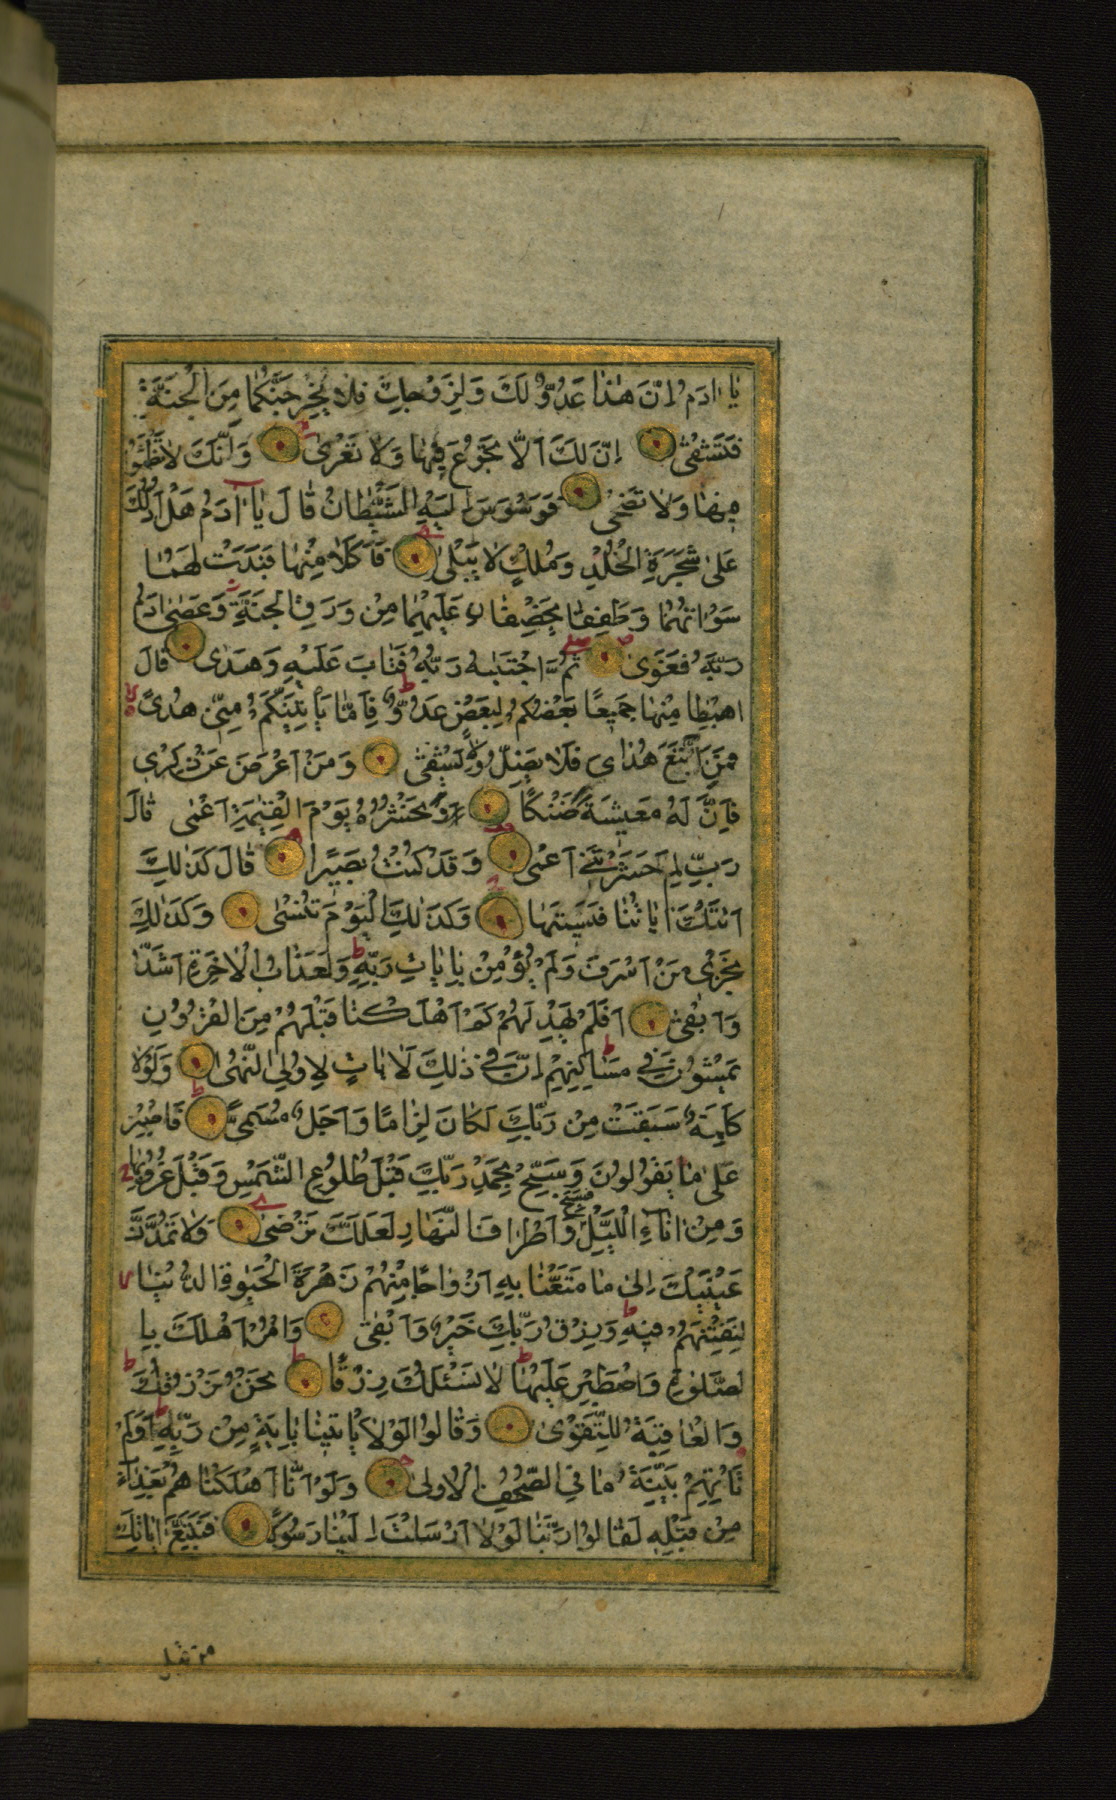 يا ادم ان هذا عدو لك ولزوجك فلا يخرجنكما من الجنة
فتشقى ان لك الا تجوع فيها ولا تعرى وانك لا تظمؤا
فيها ولا تضحى فوسوس اليه الشيطان قال يا ادم هل ادلك
على شجرة الخلد وملك لا يبلى فاكلا منها فبدت لهما
سواتهما وطفقا يخصفان عليهما من ورق الجنة وعصى ادم
ربه فغوى ثم اجتبيه ربه فتاب عليه وهدى قال
اهبطا منها جميعا بعضكم لبعض عدو فاما ياتينكم منى هدى
فمن اتبع هداى فلا يضل ولا يشقى ومن اعرض عن ذكرى
فان له معيشة ضنكا ونحشره يوم القيمة اعمى قال
رب لم حشرتنى اعمى وقد كنت بصيرا قال كذلك
اتتك اياتنا فنسيتها وكذلك اليوم تنسى وكذلك
نجزى من اسرف ولم يؤمن بايات ربه ولعذاب الاخرة اشد
وابقى افلم يهد لهم كم اهلكنا قبلهم من القرون
يمشون فى مساكنهم ان فى ذلك لايات لاولى النهى ولولا
كلمة سبقت من ربك لكان لزاما واجل مسمى فاصبر
على ما يقولون وسبح بحمد ربك قبل طلوع الشمس وقبل غروبها
ومن اناء الليل فسبح واطراف النهار لعلك ترضى ولا تمدن
عينيك الى ما متعنا به ازواجا منهم زهرة الحيوة الدنيا
لنفتنهم فيه ورزق ربك خير وابقى وامر اهلك با
لصلوة واصطبر عليها لا نسئلك رزقا نحن نرزقك
والعاقبة للتقوى وقالوا لولا ياتينا باية من ربه اولم
تاتهم بينة ما فى الصحف الاولى ولو انا اهلكناهم بعذاب
من قبله لقالوا ربنا لولا ارسلت الينا رسولا فنتبع اياتك
من قبل